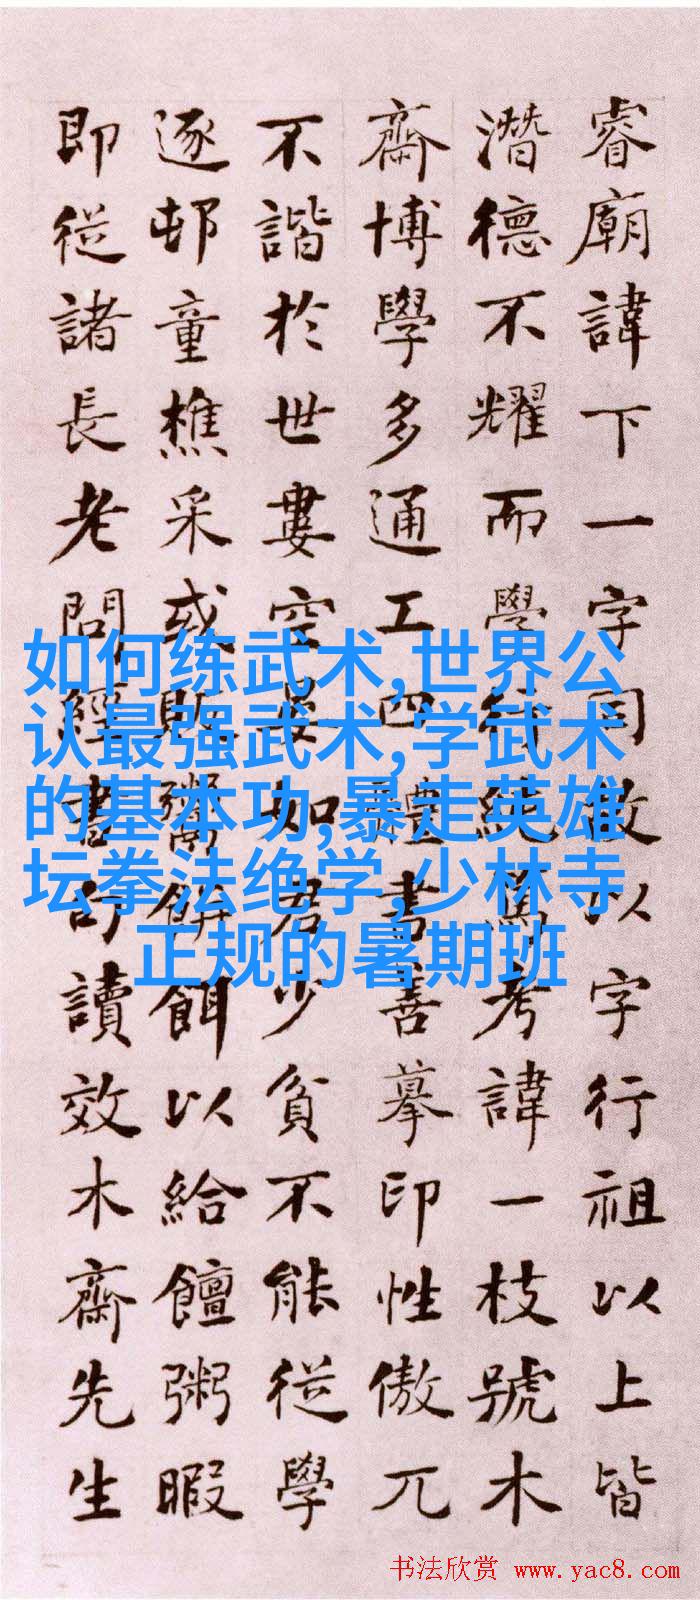 睿廟諱下一字同故以字行祖以上皆
潛德不耀而學行純篤考諱一枝號木
齋博學多通工四體書善摹印性傲兀
不諧於世婁空晏如君少貧不能從學
逐邨童樵采或販鬻餅餌以給饘粥暇
即從諸長老問經書句讀效木齋先生
如何练武术,世界公
认最强武术,学武术
的基本功,暴走英雄
坛拳法绝学,少林寺
正规的暑期班
书法欣赏 www.yac8.com